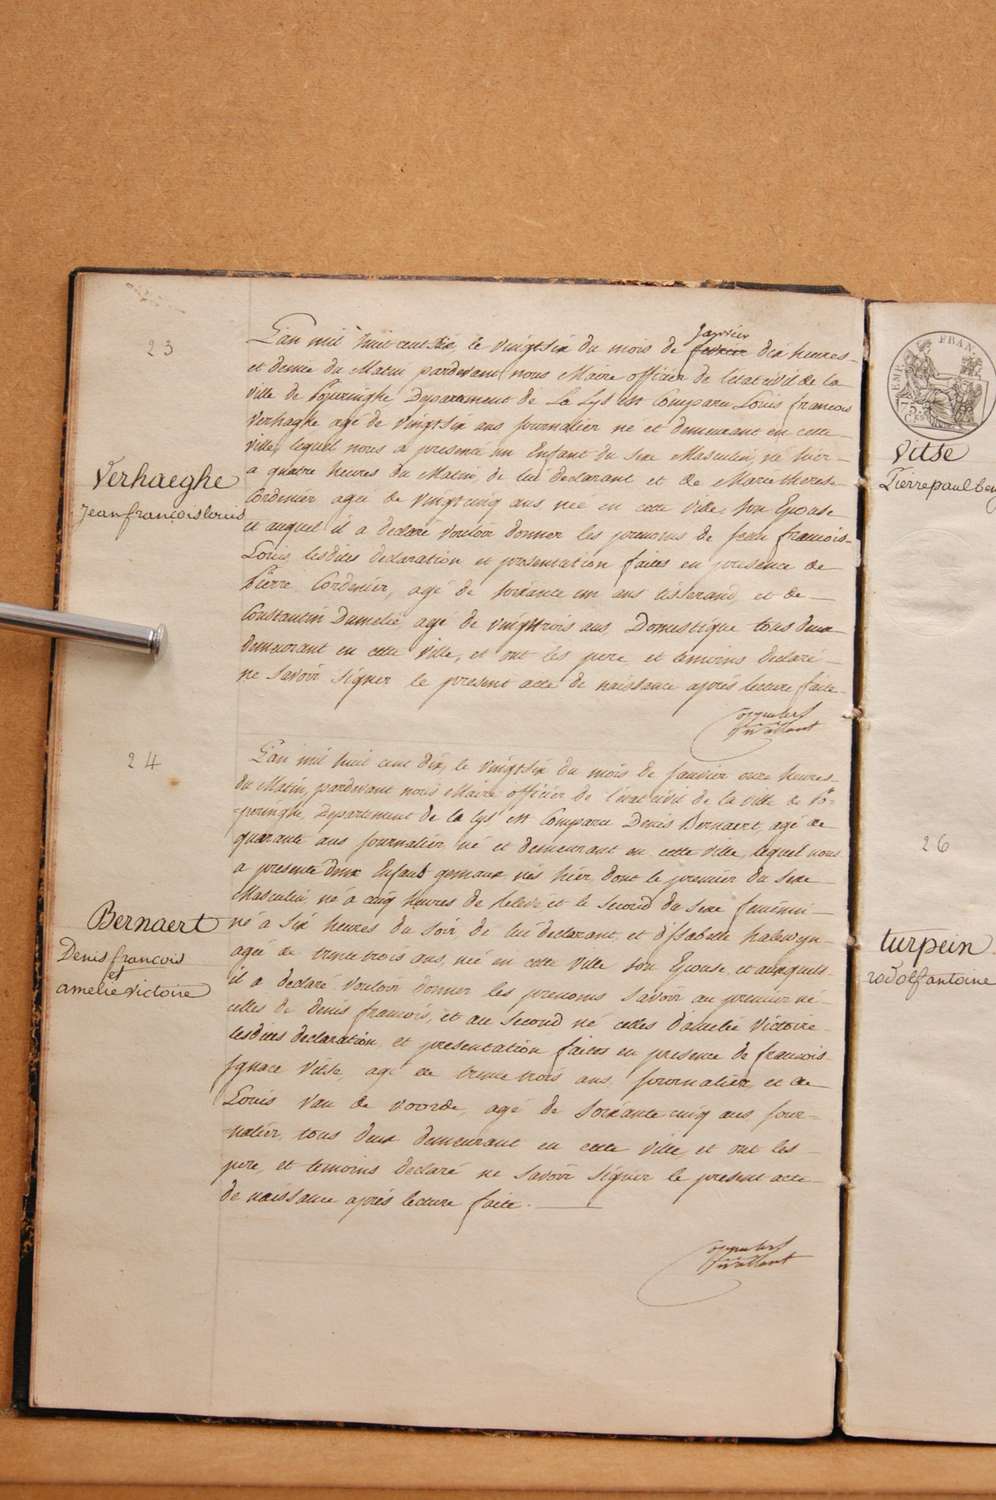 23
L'an mil huit cent dix, le vingtsix du mois de janvier fevrier dix heures
et demie du Matin pardevant nous Maire officier de l'etat civil de la
ville de Popringhe Departement de La Lys est comparu Louis francois
Verhaghe agé de vingtsix ans journalier né et demeurant en cette
ville, lequel nous a presenté un Enfant du sexe Masculin, né hier
a quatre heures du Matin de lui declarant et de Marie therese
Cordenier agée de vingtcinq ans née en cette ville son Epouse
et auquel il a declaré vouloir donner les prenoms de jean francois
Louis, lesdites declaration et presentation faites en presence de
Pierre Cordenier, agé de soixante un ans tisserand, et de
Constantin Dumelie, agé de vingttrois ans, Domestique tous deux
demeurant en cette ville, et ont les pere et temoins declaré
ne savoir signer le present acte de naissance après lecture faite
Verhaeghe
Jean françois louis
24
L'an mil huit cent dix, le vingtsix du mois de Janvier onze heures
du Matin, pardevant nous Maire officier de l'état civil de la ville de Po-
pringhe, Departement de la Lys est comparu Denis Bernaert, agé de
quarante ans journalier né et demeurant en cette ville, lequel nous
a presenté deux Enfans gemaux nés hier, dont le premier du sexe
Masculin, né a cinq heures de relevée et le second du sexe feminin
né a six heures du soir, de lui declarant, et d'Isabelle halewyn
agée de trente trois ans, née en cette ville son Epouse, et auxquels
il a declaré vouloir donner les prenoms savoir au premier né
celles de Denis francois, et au second né celles d'amelie Victoire
lesdites declaration, et presentation faites en presence de francois
Ignace Vitse, agé de trente trois ans, journalier et de
Louis Van de Voorde, agé de soixante cinq ans jour-
nalier, tous deux demeurant en cette ville et ont les
pere, et temoins declaré ne savoir signer le present acte
de naissance après lecture faite.
Bernaert
Denis françois
et
amelie victoire
EMP FRAN
75
Vitse
Pierre paul
26
turpein
rodolf antoine